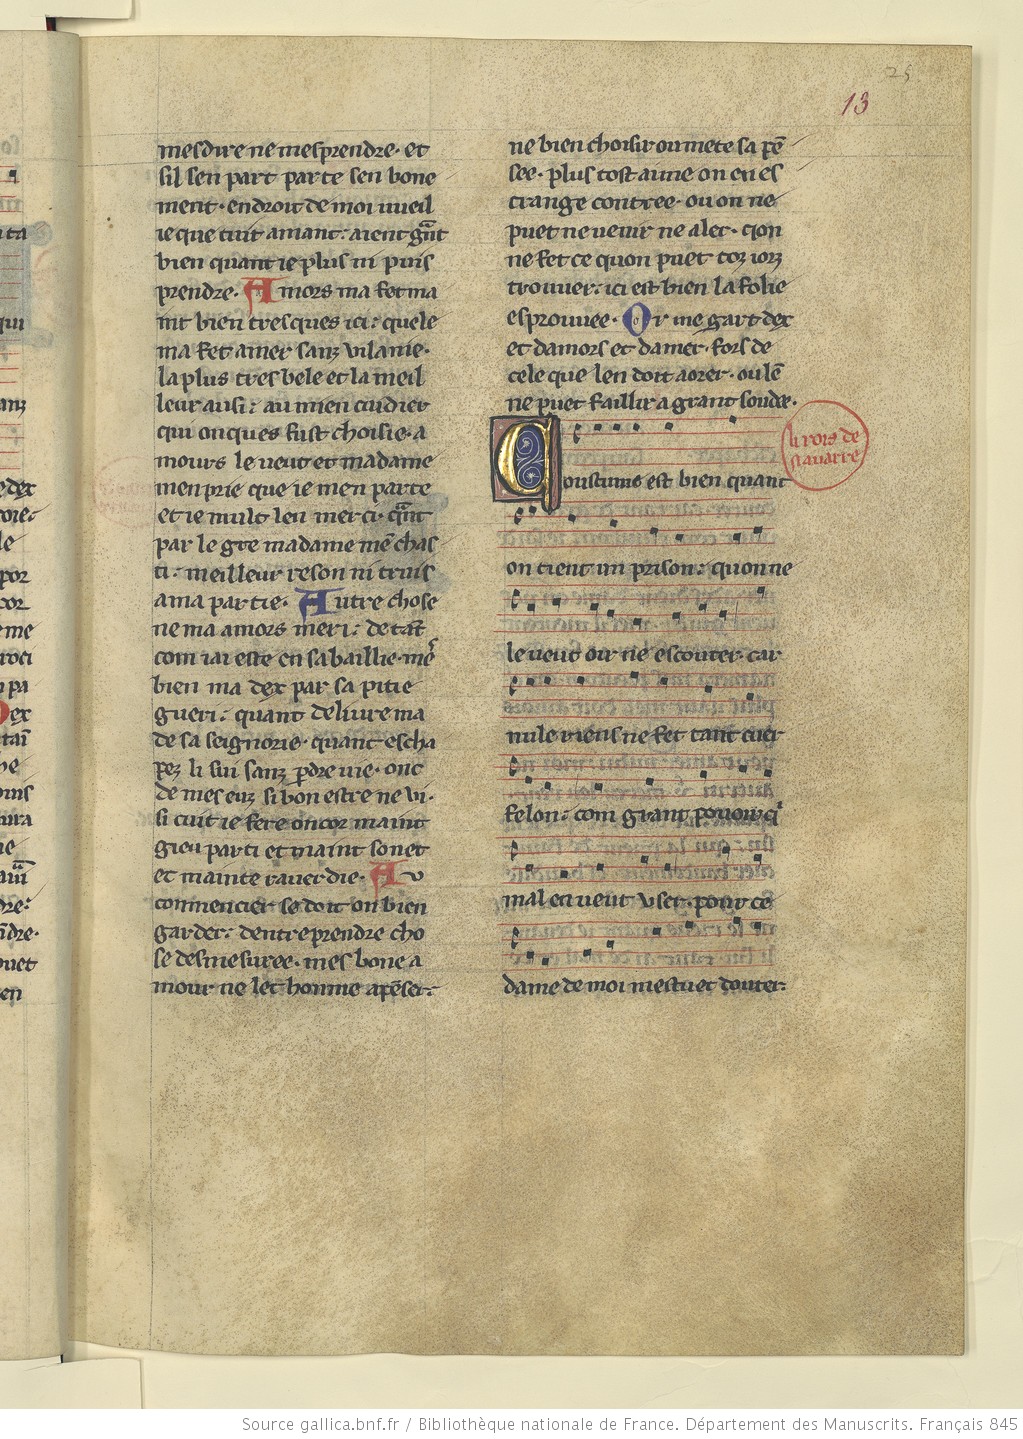 25
13
mesdire ne mesprendre· et
sil sen part parte sen bone
ment· endroit de moi vueil
ie que tuit amant: aient gñt
bien quant ie plus ni puis
prendre· Amors ma fet ma
int bien tresques ici: quele
ma fet amer sanz vilanie·
la plus tres bele et la meil
leur ausi: au mien cuidier
qui onques fust choisie· a
mours le veut et madame
men prie que ie men parte
et ie mult len merci· qñt
par le gre madame mē chas
ti: meilleur reson ni truis
a ma partie· Autre chose
ne ma amors meri: de tāt
com iai este en sa baillie· m̄
bien ma dex par sa pitie
gueri: quant delivre ma
de sa seignorie· quant escha
pez li sui sanz ꝑdre vie· onc
de mes euz si bon estre ne vi·
si cuit ie fere oncor maint
gieu parti et maint sonet
et mainte raverdie· Au
conmencier se doit on bien
garder: dentreprendre cho
se desmesuree· mes bone a
mour ne let honme apēser:
ne bien choisir ou mete sa pē
see· plus tost aime on en es
trange contree· ou on ne
puet ne venir ne aler· qon
ne fet ce quon puet toz iorz
trouver: ici est bien la folie
esprouvee· Or me gart dex
et damors et damer· fors de
cele que len doit aorer· ou lē
ne puet faillir a grant soudee·
li rois de
Navarre
Coustume est bien quant
on tient un prison: quon ne
le veut oir ne escouter· car
nule riens ne fet tant cuer
felon: com grant pouoir q̇
mal en veut user· pour ce
dame de moi mestuet douter:
Source gallica.bnf.fr / Bibliothèque nationale de France. Département des Manuscrits. Français 845